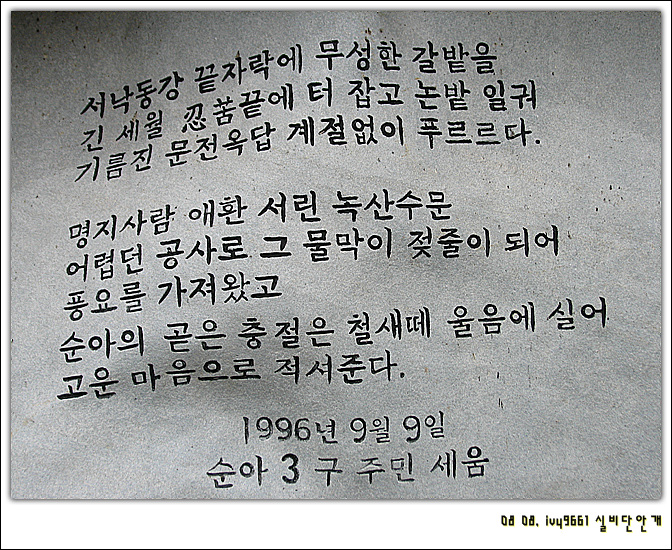 서낙동강 끝자락에 무성한 갈밭을
긴 세월 忍苦끝에 터 잡고 논밭 일궈
기름진 문전옥답 계절없이 푸르르다.
명지사람 애환 서린 녹산수문
어렵던 공사로 그 물막이 젖줄이 되어
풍요를 가져왔고
순아의 곧은 충절은 철새떼 울음에 실어
고운 마음으로 적셔준다.
1996년 9월 9일
순아 3 구 주민 세움
08 08. ivy9661 실비단안개